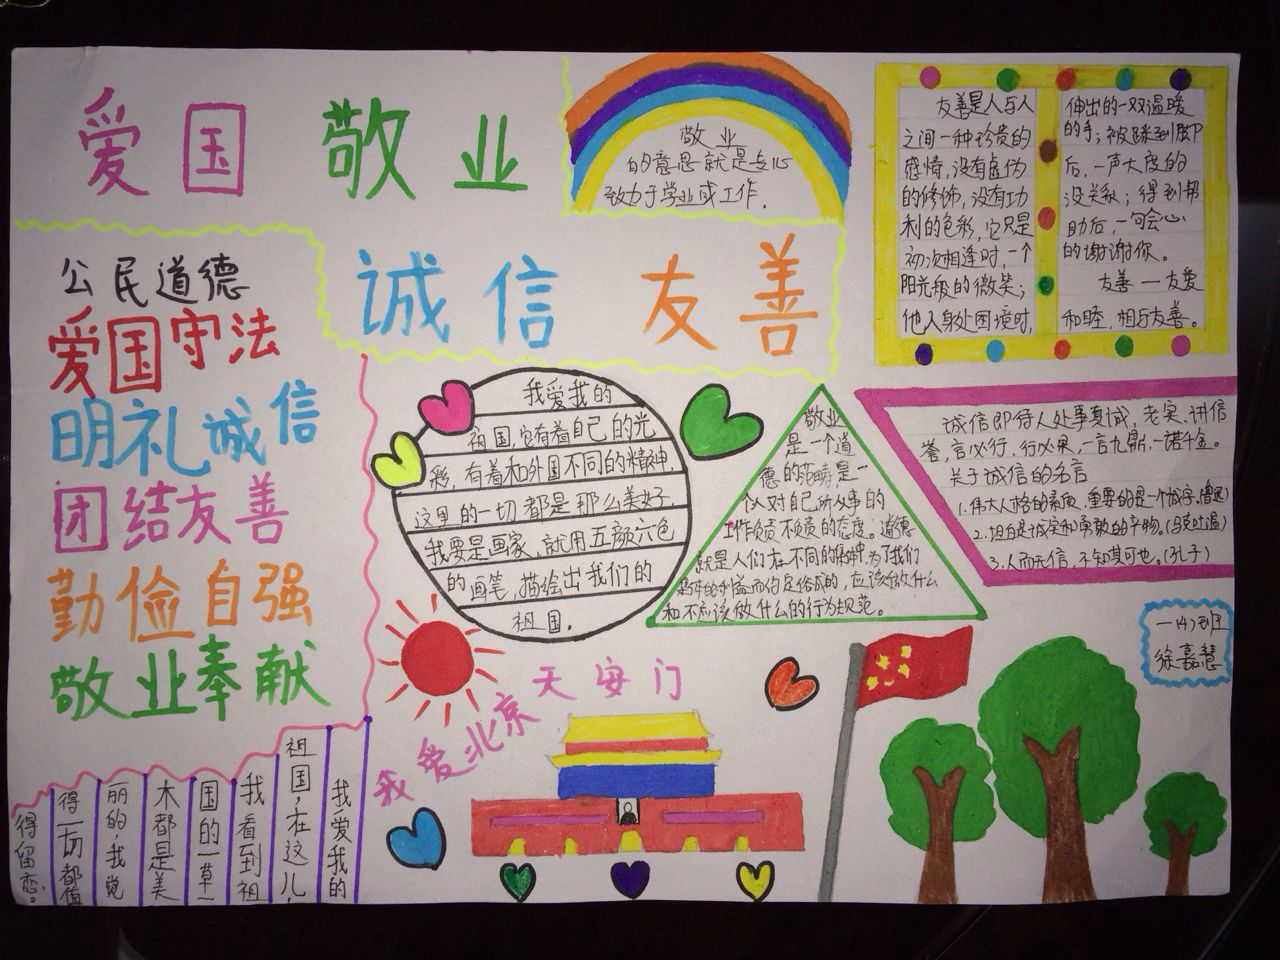 爱国 敬业
诚信 友善
敬业
的意思就是专心
致力于学业或工作.
友善是人与人
之间一种珍贵的
感情,没有虚伪
的修饰,没有功
利的色彩,它只是
初次相逢时,一个
阳光般的微笑;
他人身处困境时,
伸出的一双温暖
的手;被踩到脚
后,一声大度的
没关系;得到帮
助后,一句会心
的谢谢你。
友善一一友爱
和睦,相与友善。
公民道德
爱国守法
明礼诚信
团结友善
勤俭自强
敬业奉献
我爱我的
祖国,它有着自己的光
彩,有着和外国不同的精神,
这里的一切都是那么美好.
我要是画家,就用五颜六色
的画笔,描绘出我们的
祖国.
敬业
是一个道
德的范畴是一
个人对自己所从事的
工作负责不负责的态度。道德
就是人们在不同的集体中,为了我们
集体的利益而约定俗成的,应该做什么
和不应该做什么的行为规范。
诚信即待人处事真诚,老实,讲信
誉,言必行,行必果,一言九鼎,一诺千金。
关于诚信的名言
1.伟大人格的素质,重要的是一个诚字.(鲁迅)
2.坦白是诚实和勇敢的产物。(马克吐温)
3.人而无信,不知其可也。(孔子)
一(4)班
徐嘉慧
我爱北京天安门
我爱我的
祖国,在这儿,
我看到祖
国的一草一
木都是美
丽的,我觉
得一切都值
得留恋。